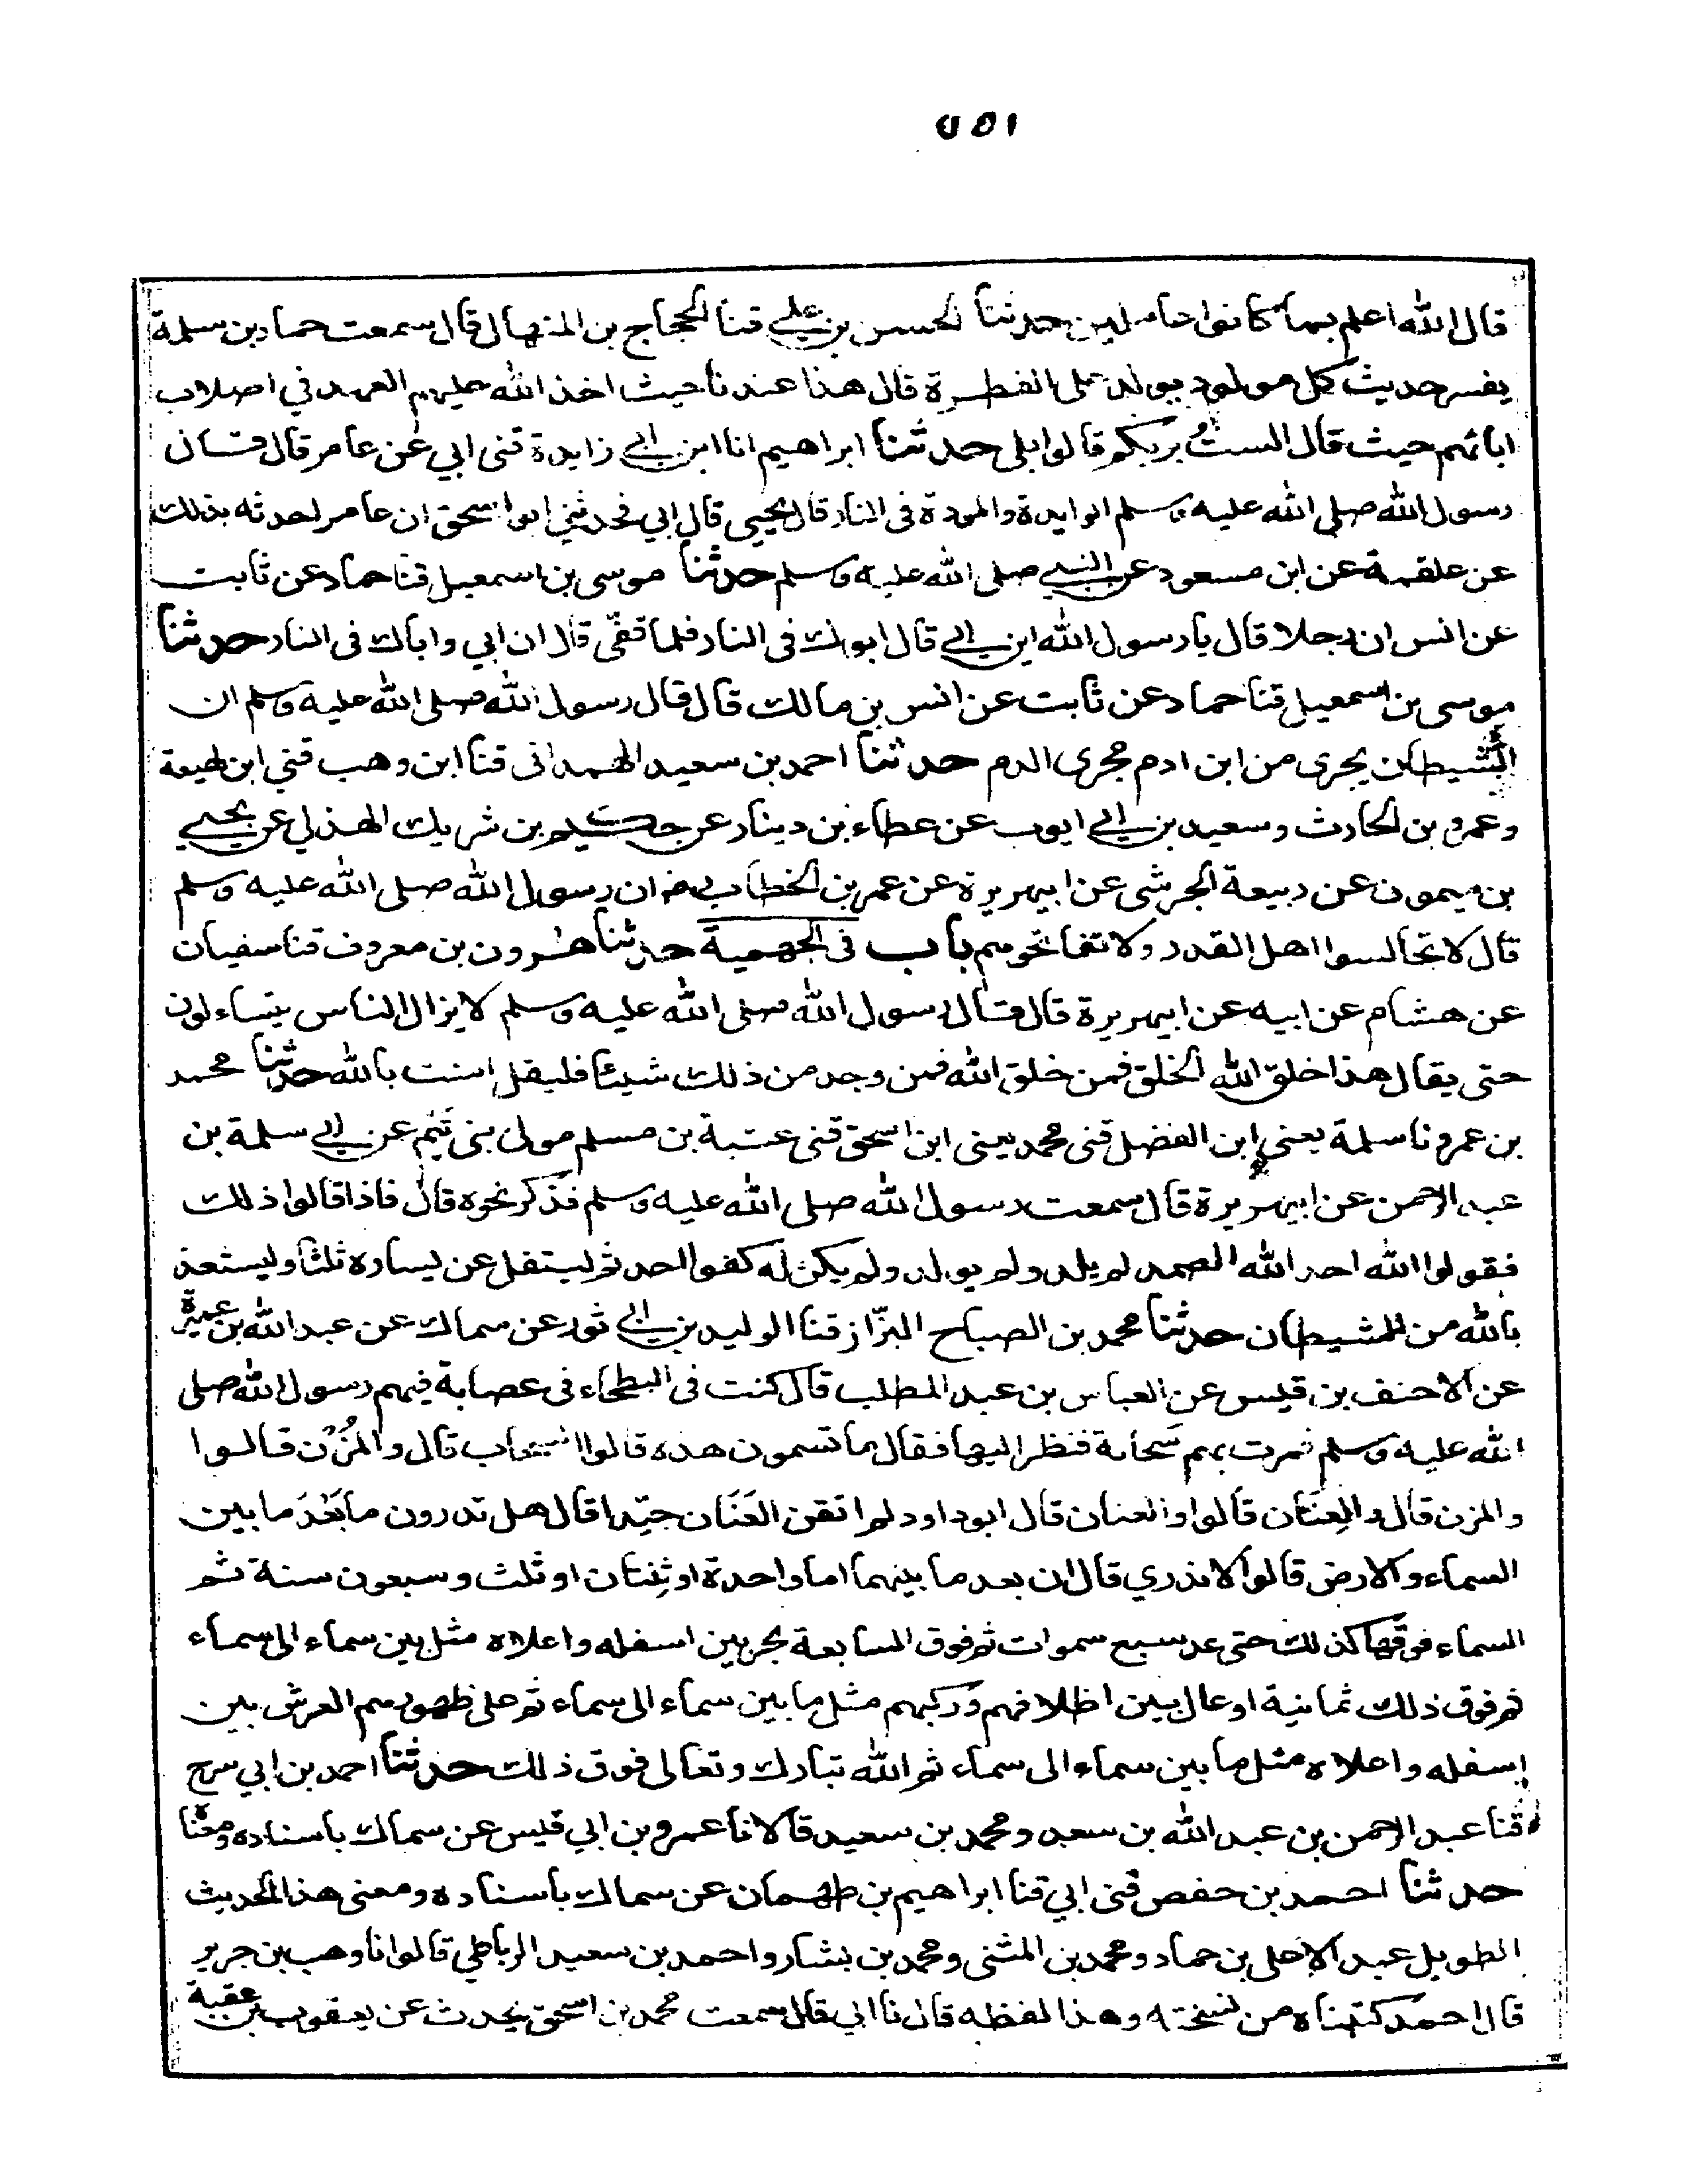 ١٥٥
قال الله اعلم بما كانوا عاملين حدثنا الحسن بن علي قثنا الحجاج بن المنهال قال سمعت حماد بن سلمة
يفسر حديث كل مولود يولد على الفطرة قال هذا عندنا حيث اخذ الله عليهم العهد في اصلاب
ابائهم حيث قال الستُ بربكم قالوا بلى حدثنا ابراهيم انا ابن ابي زايدة قثنى ابي عن عامر قال قال
رسول الله صلى الله عليه وسلم الوايدة والمودة فى النار قال يحيى قال ابي فحدثني ابو اسحق ان عامرا حدثه بذلك
عن علقمة عن ابن مسعود عن النبي صلى الله عليه وسلم حدثنا موسى بن اسمعيل قثنا حماد عن ثابت
عن انس ان رجلا قال يا رسول الله اين ابي قال ابوك فى النار فلما قفّى قال ان ابي واباك فى النار حدثنا
موسى بن اسمعيل قثنا حماد عن ثابت عن انس بن مالك قال قال رسول الله صلى الله عليه وسلم ان
الشيطان يجرى من ابن ادم مجرى الدم حدثنا احمد بن سعيد الهمدانى قثنا ابن وهب قثني ابن لهيعة
وعمرو بن الحارث وسعيد بن ابي ايوب عن عطاء بن دينار عن حكيم بن شريك الهذلي عن يحيى
بن ميمون عن ربيعة الجرشى عن ابيهريرة عن عمر بن الخطاب رض ان رسول الله صلى الله عليه وسلم
قال لا تجالسوا اهل القدر ولا تفاتحوهم باب فى الجهمية حدثنا هرون بن معروف قثنا سفيان
عن هشام عن ابيه عن ابيهريرة قال قال رسول الله صلى الله عليه وسلم لا يزال الناس يتساءلون
حتى يقال هذا خلق الله الخلق فمن خلق الله فمن وجد من ذلك شيئا فليقل امنت بالله حدثنا محمد
بن عمرو نا سلمة يعني ابن الفضل قثنى محمد يعنى ابن اسحق قثنى عتبة بن مسلم مولى بنى تَيْم عن ابي سلمة بن
عبد الرحمن عن ابيهريرة قال سمعت رسول الله صلى الله عليه وسلم فذكر نحوه قال فاذا قالوا ذلك
فقولوا الله احد الله الصمد لم يلد ولم يولد ولم يكن له كفوا احد ثم ليتفل عن يساره ثلثا وليستعذ
بالله من الشيطان حدثنا محمد بن الصباح البزّاز قثنا الوليد بن ابي ثور عن سماك عن عبد الله بن عميرة
عن الاحنف بن قيس عن العباس بن عبد المطلب قال كنت فى البطحاء فى عصابة فيهم رسول الله صلى
الله عليه وسلم فمرت بهم سَحابة فنظر اليها فقال ما تسمون هذه قالوا السحاب قال والمُزْن قالوا
والمزن قال والعنان قالوا والعنان قال ابو داود لم اتقن العَنَان جيّدا قال هل تدرون ما بُعْدَ ما بين
السماء والارض قالوا لا ندري قال ان بعد ما بينهما اما واحدة او ثِنتان او ثلث وسبعون سنة ثم
السماء فوقها كذلك حتى عد سبع سموات ثم فوق السابعة بحر بين اسفله واعلاه مثل بين سماء الى سماء
ثم فوق ذلك ثمانية اوعال بين اظلافهم وركبهم مثل ما بين سماء الى سماء ثم على ظهورهم العرش بين
اسفله واعلاه مثل ما بين سماء الى سماء ثم الله تبارك وتعالى فوق ذلك حدثنا احمد بن ابي سرج
قثنا عبد الرحمن بن عبد الله بن سعد ومحمد بن سعيد قالا نا عمرو بن ابي قيس عن سماك باسناده ومعناه
حدثنا احمد بن حفص قثنى ابي قثنا ابراهيم بن طهمان عن سماك باسناده ومعنى هذا الحديث
الطويل عبد الاعلى بن حماد ومحمد بن المثنى ومحمد بن بشار واحمد بن سعيد الرباطي قالوا نا وهب بن جرير
قال احمد كتبناه من نسخته وهذا لفظه قال نا ابي قال سمعت محمد بن اسحق يحدث عن يعقوب بن عقبة